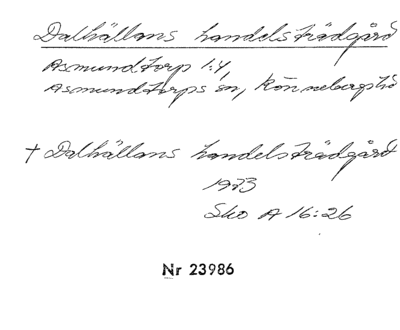 Dalhällans handelsträdgård
Asmundtorp 1:4,
Asmundtorps sn, Rönnebergs hd
† Dalhällans handelsträdgård
1973
Sko A 16:26
Nr 23986